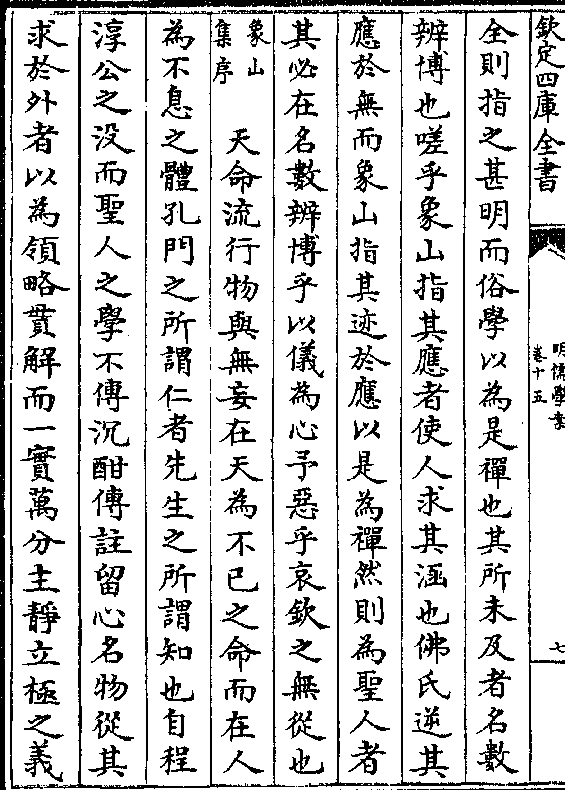 欽定四庫全書
明儒學案
卷十五
七
全則指之甚明而俗學以為是禪也其所未及者名數
辨博也嗟乎象山指其應者使人求其涵也佛氏逆其
應於無而象山指其迹於應以是為禪然則為聖人者
其必在名數辨博乎以儀為心予惡乎哀欽之無從也
象山
集序
天命流行物與無妄在天為不已之命而在人
為不息之體孔門之所謂仁者先生之所謂知也自程
淳公之没而聖人之學不傳沉酣傳註留心名物從其
求於外者以為領略貫解而一實萬分主靜立極之義